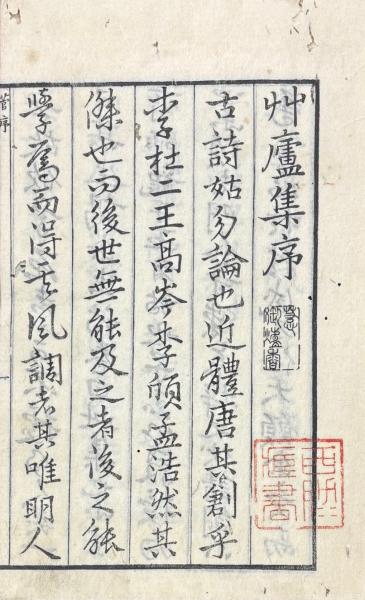 艸廬集序
古詩姑勿論也近體唐其創乎
李杜二王高岑李頎孟浩然其
傑也而後世無能及之者後之能
學焉而得其風調者其唯明人
菅序